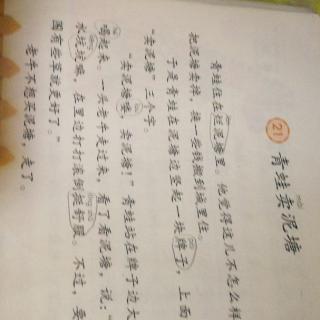 21 青蛙卖泥塘
青蛙住在烂泥塘里。他觉得这儿不怎么样
把泥塘卖掉，换一些钱搬到城里住。
于是青蛙在泥塘边竖起一块牌子，上面
“卖泥塘”三个字。
“卖泥塘喽，卖泥塘！”青蛙站在牌子边大
喝起来。一头老牛走过来，看了看泥塘，说：“
水坑坑嘛，在里边打打滚倒挺舒服。不过，要
围有些草就更好了。”
老牛不想买泥塘，走了。